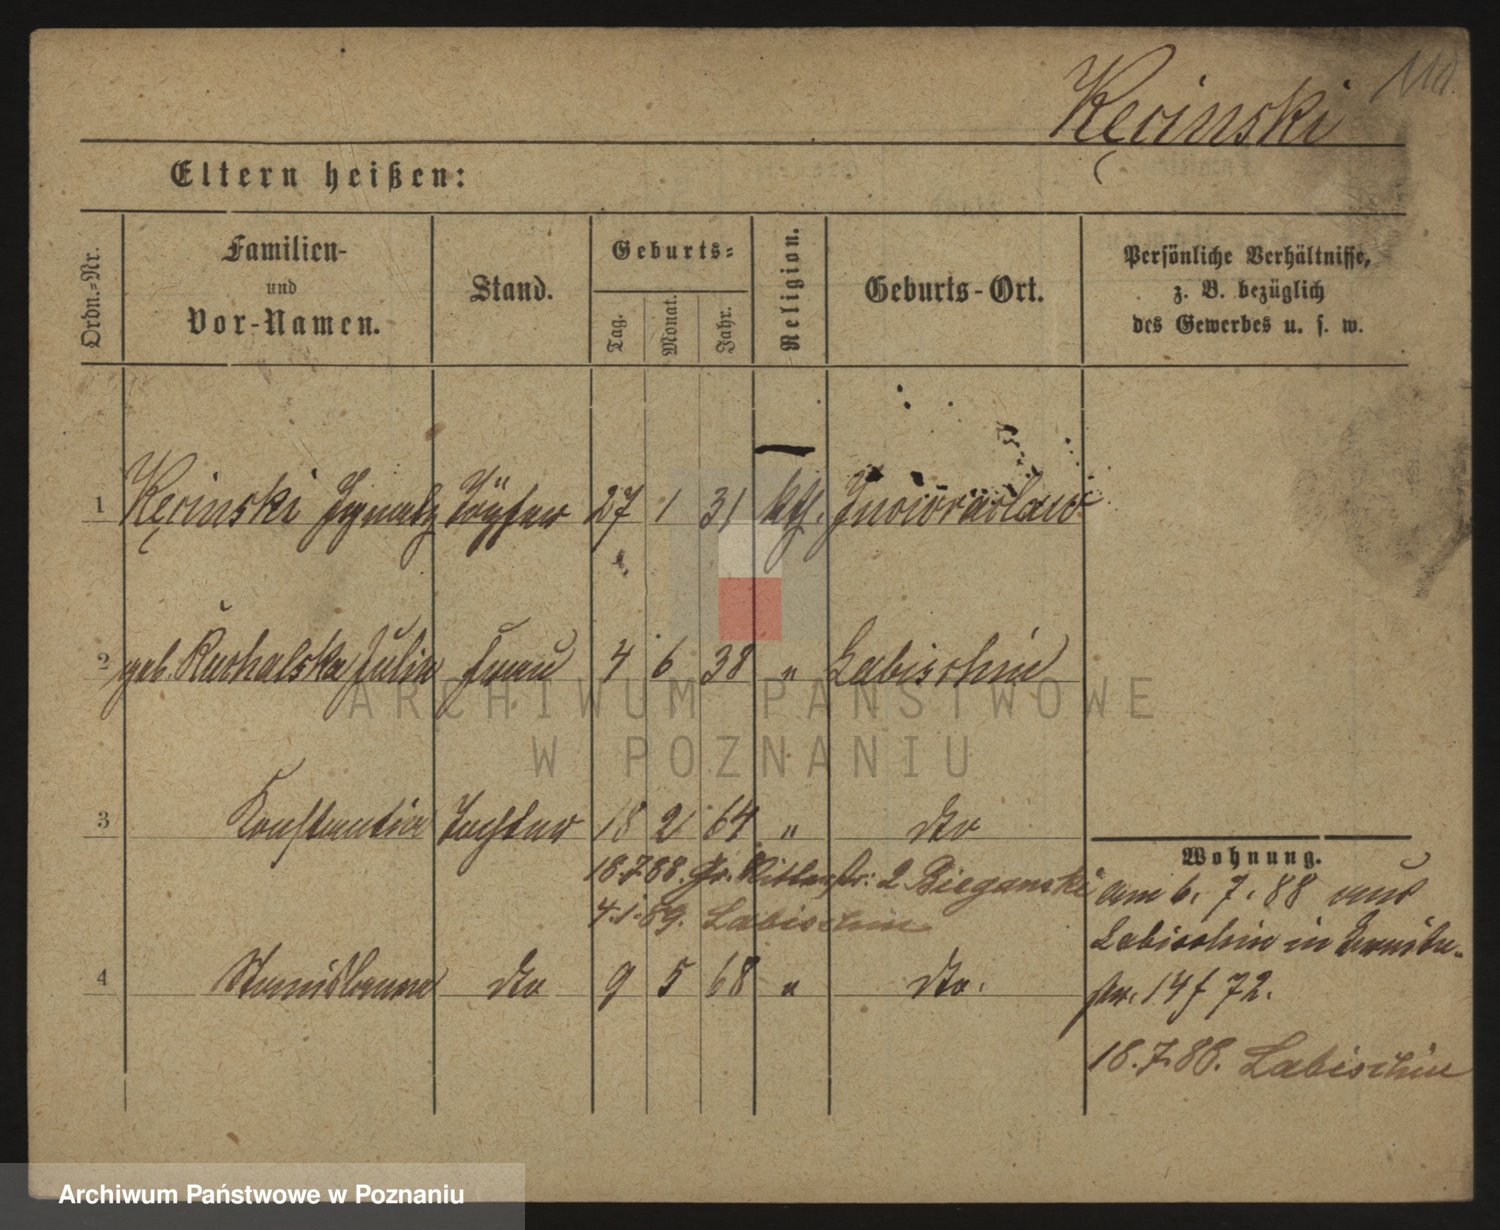 Kęcinski
Eltern heißen:
Ordn.-Nr.
Familien-
und
Vor-Namen.
Stand.
Geburts-
Tag.
Monat.
Jahr.
Religion.
Geburts-Ort.
Persönliche Verhältnisse,
z. B. bezüglich
des Gewerbes u. s. w.
1 Kęcinski Ignatz Töpfer 27 1 31 kth. Inowraclaw
2 geb. Kuchalska Julia Frau 4 6 38 " Labischin
3 Konstantia Tochter 18 2 64 " dto
18.7.88. Gr. Ritterstr: 2 Bieganski
4.1.89. Labischin
4 Stanislawa dto 9 5 68 " dto.
Wohnung.
am 6. 7. 88 aus
Labischin in
str. 14 f 72.
18.7.88. Labischin
ARCHIWUM PAŃSTWOWE
W POZNANIU
Archiwum Państwowe w Poznaniu